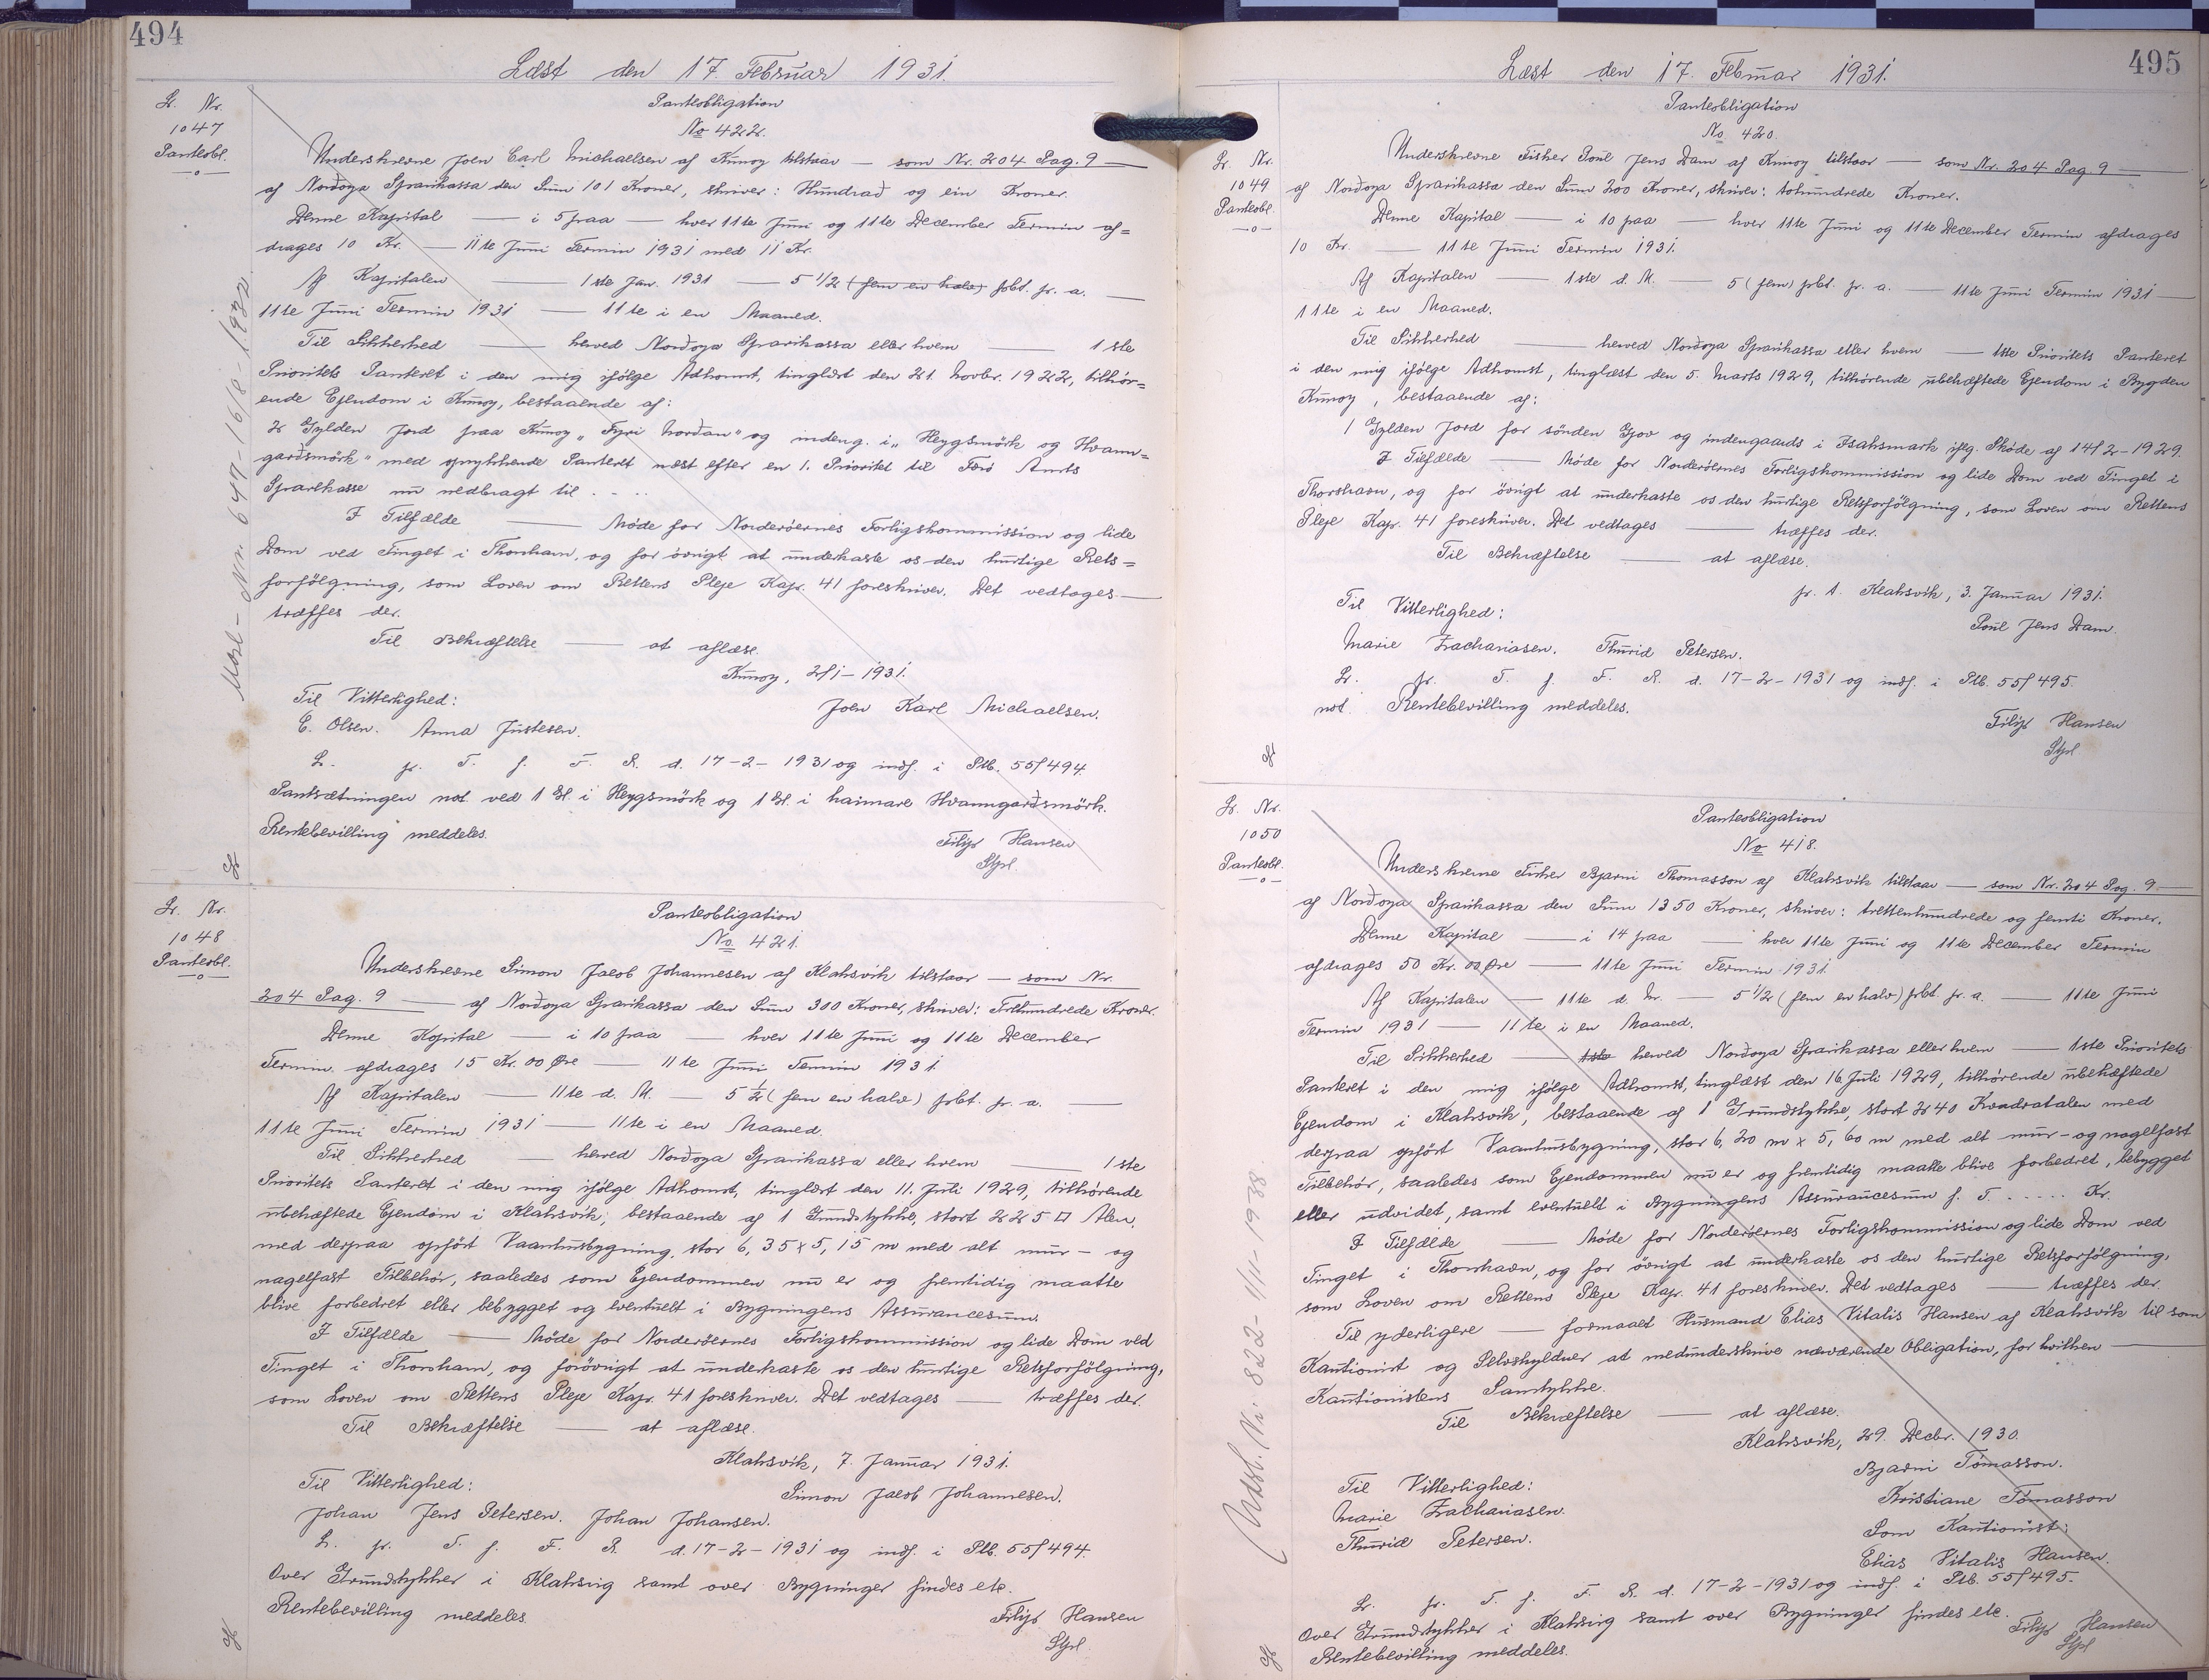 494
Læst den 17. Februar 1931.
Lr. Nr.
1047
Panteobl.
Panteobligation
No 422.
Underskrevne Joen Carl Michaelsen af Kunoy tilstaar — som Nr. 204 Pag. 9 —
af Nordoya Sparikassa den Sum 101 Kroner, skriver: Hundrað og ein Kroner.
Denne Kapital — i 5 paa — hver 11te Juni og 11te December Termin af=
drages 10 Kr. — 11te Juni Termin 1931 med 11 Kr.
Af Kapitalen — 1ste Jan. 1931 — 5 1/2 (fem en halv) pbt. pr. a. —
11te Juni Termin 1931 — 11te i en Maaned.
Til Sikkerhed — herved Norðoya Sparikassa eller hvem — 1ste
Prioritets Panteret i den mig ifölge Adkomst, tinglæst den 21. Novbr. 1922, tilhör=
ende Ejendom i Kunoy, bestaaende af:
2 Gylden Jord paa Kunoy „Fyri Norðan" og indeng. i „Heygsmörk og Hvann=
garðsmörk" med oprykkende Panteret næst efter en 1. Prioritet til Færö Amts
Sparekasse nu nedbragt til . - ..
I Tilfælde — Möde for Norderöernes Forligskommission og lide
Dom ved Tinget i Thorshavn, og for övrigt at underkaste os den hurtige Rets=
forfölgning, som Loven om Rettens Pleje Kap. 41 foreskriver. Det vedtages —
træffes der.
Til Bekræftelse — at aflæse.
Kunoy, 2/1 - 1931.
Til Vitterlighed:
Joen Karl Michaelsen.
E. Olsen. Anna Justesen.
L. pr. T. f. F. R. d. 17-2-1931 og indf. i Ptb. 55/494.
Pantsætningen not. ved 1 Gl. i Heygsmörk og 1 Gl. i haimare Hvanngarðsmörk.
Rentebevilling meddeles.
Filip Hansen
Stpl.
Lr. Nr.
1048
Panteobl.
Panteobligation
No 421.
Underskrevne Simon Jacob Johannesen af Klaksvik tilstaar — som Nr.
204 Pag. 9 — af Norðoya Sparikassa den Sum 300 Kroner, skriver: Trehundrede Kroner.
Denne Kapital — i 10 paa — hver 11te Juni og 11te December
Termin afdrages 15 Kr. 00 Øre — 11te Juni Termin 1931.
Af Kapitalen — 11te d. M. — 5 1/2 (fem en halv) pbt. pr. a. —
11te Juni Termin 1931 — 11te i en Maaned.
Til Sikkerhed — herved Norðoya Sparikassa eller hvem — 1ste
Prioritets Panteret i den mig ifölge Adkomst, tinglæst den 11. Juli 1929, tilhörende
ubehæftede Ejendom i Klaksvik; bestaaende af 1 Grundstykke, stort 225 □ Alen,
med derpaa opfört Vaanhusbygning, stor 6,35 x 5,15 m med alt mur- og
nagelfast Tilbehör, saaledes som Ejendommen nu er og fremtidig maatte
blive forbedret eller bebygget og eventuelt i Bygningens Assurancesum.
I Tilfælde — Möde for Norderöernes Forligskommission og lide Dom ved
Tinget i Thorshavn, og forövrigt at underkaste os den hurtige Retsforfölgning,
som Loven om Rettens Pleje Kap. 41 foreskriver. Det vedtages — træffes der.
Til Bekræftelse — at aflæse.
Klaksvik, 7. Januar 1931.
Til Vitterlighed:
Simon Jacob Johannesen.
Johan Jens Petersen. Johan Johansen.
L. pr. T. f. F. R. d. 17-2-1931 og indf. i Ptb. 55/494.
Over Grundstykker i Klaksvig samt over Bygninger findes etc.
Rentebevilling meddeles.
Filip Hansen
Stpl.
495
Læst den 17. Februar 1931.
Lr. Nr.
1049
Panteobl.
Panteobligation
No 420.
Underskrevne Fisker Poul Jens Dam af Kunoy tilstaar — som Nr. 204 Pag. 9 —
af Norðoya Sparikassa den Sum 200 Kroner, skriver: tohundrede Kroner.
Denne Kapital — i 10 paa — hver 11te Juni og 11te December Termin afdrages
10 Kr. — 11te Juni Termin 1931.
Af Kapitalen — 1ste d. M. — 5 (fem) pbt. pr. a. — 11te Juni Termin 1931 —
11te i en Maaned.
Til Sikkerhed — herved Norðoya Sparikassa eller hvem — 1ste Prioritets Panteret
i den mig ifölge Adkomst, tinglæst den 5. Marts 1929, tilhörende ubehæftede Ejendom i Bygden
Kunoy, bestaaende af:
1 Gylden Jord for sönden Gjov og indengaards i Isaksmark iflg. Skøde af 14/2-1929.
I Tilfælde — Möde for Norderöernes Forligskommission og lide Dom ved Tinget i
Thorshavn, og for övrigt at underkaste os den hurtige Retsforfölgning, som Loven om Rettens
Pleje Kap. 41 foreskriver. Det vedtages — træffes der.
Til Bekræftelse — at aflæse.
pr. t. Klaksvik, 3. Januar 1931.
Til Vitterlighed:
Poul Jens Dam.
Marie Zachariasen. Thurid Petersen.
L. pr. T. f. F. R. d. 17-2-1931 og indf. i Ptb. 55/495.
not. Rentebevilling meddeles.
Filip Hansen
Stpl
Lr. Nr.
1050
Panteobl.
Panteobligation
No 418.
Underskrevne Fisker Bjarni Thomasson af Klaksvik tilstaar — som Nr. 204 Pag. 9 —
af Norðoya Sparikassa den Sum 1350 Kroner, skriver: trettenhundrede og femti Kroner.
Denne Kapital — i 14 paa — hver 11te Juni og 11te December Termin
afdrages 50 Kr. 00 Øre — 11te Juni Termin 1931.
Af Kapitalen — 11te d. M. — 5 1/2 (fem en halv) pbt. pr. a. — 11te Juni
Termin 1931 — 11te i en Maaned.
Til Sikkerhed — 1ste herved Norðoya Sparikassa eller hvem — 1ste Prioritets
Panteret i den mig ifölge Adkomst, tinglæst den 16 Juli 1929, tilhörende ubehæftede
Ejendom i Klaksvik, bestaaende af 1 Grundstykke, stort 240 Kvadratalen med
derpaa opfört Vaanhusbygning, stor 6,20 m x 5,60 m med alt mur- og nagelfast
Tilbehör, saaledes som Ejendommen nu er og fremtidig maatte blive forbedret, bebygget
eller udvidet, samt eventuelt i Bygningens Assurancesum f. T. ..... Kr.
I Tilfælde — Möde for Norderöernes Forligskommission og lide Dom ved
Tinget i Thorshavn, og for övrigt at underkaste os den hurtige Retsforfölgning,
som Loven om Rettens Pleje Kap. 41 foreskriver. Det vedtages — træffes der.
Til yderligere — formaaet Husmand Elias Vitalis Hansen af Klaksvik til som
Kautionist og Selvskyldner at medunderskrive nærværende Obligation, for hvilken —
Kautionistens Samtykke.
Til Bekræftelse — at aflæse.
Klaksvik, 29. Decbr. 1930.
Bjarni Tómasson.
Til Vitterlighed:
Kristiane Tómasson
Marie Zachariasen.
Som Kautionist:
Thurid Petersen.
Elias Vitalis Hansen.
L. pr. T. f. F. R. d. 17-2-1931 og indf. i Ptb. 55/495.
Over Grundstykker i Klaksvig samt over Bygninger findes etc.
Filip Hansen
Stpl
Rentebevilling meddeles.
Udsl. Nr. 822- 1/11-1938.